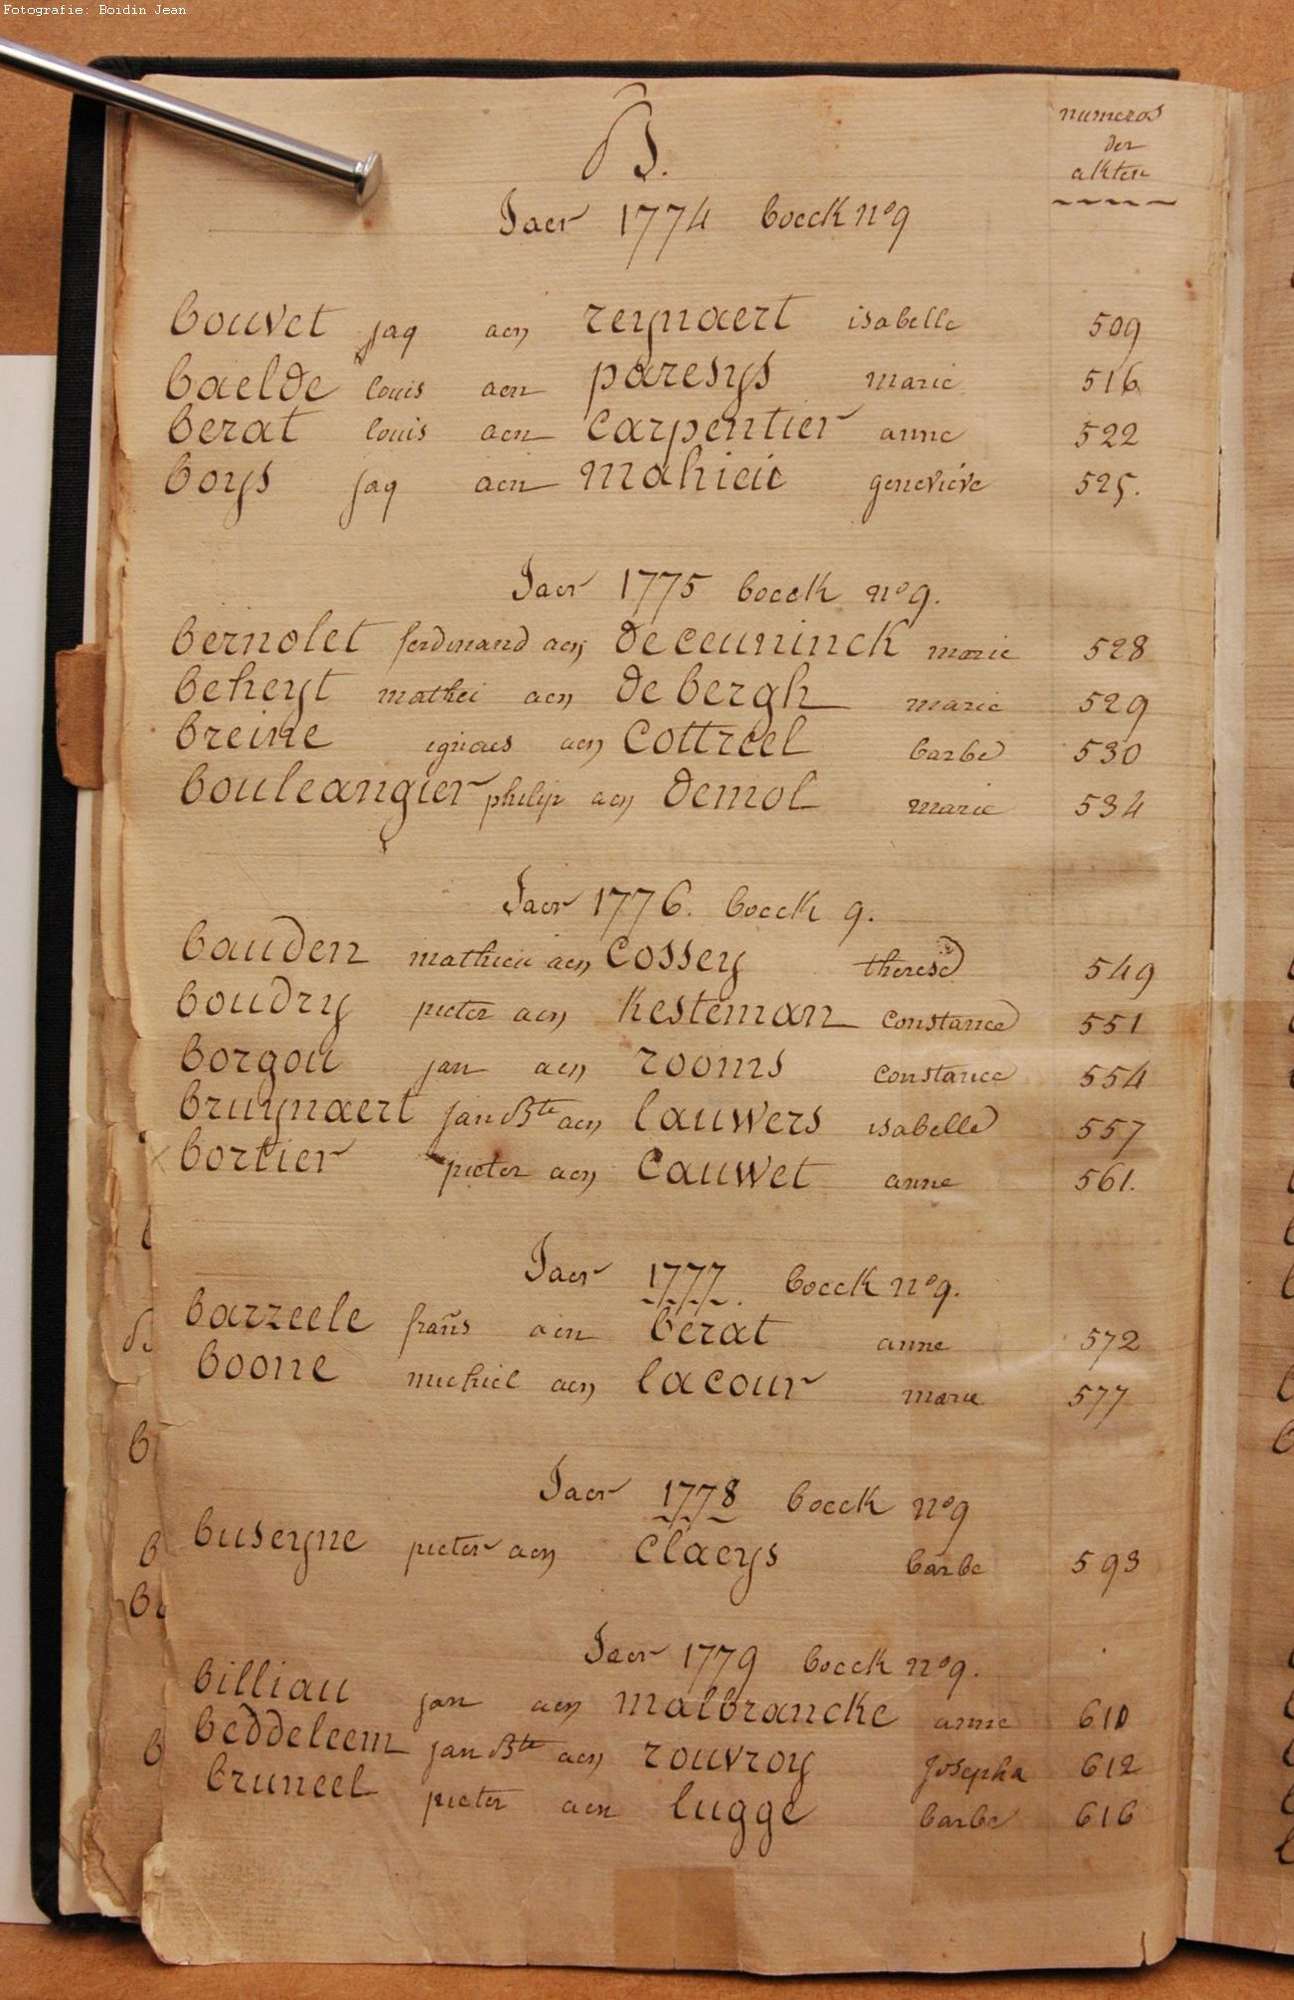 Fotografie: Boidin Jean
B.
numeros
der
akten
Jaer 1774 boeck n° 9
bouvet jaq aen reynaert isabelle 509
baelde louis aen paresys marie 516
berat louis aen carpentier anne 522
boys jaq aen mahieu geneviéve 525.
Jaer 1775 boeck n° 9.
bernolet ferdinand aen deceuninck marie 528
beheyt mathei aen de bergh marie 529
breine ignaes aen cottreel barbe 530
bouleangier philip aen demol marie 534
Jaer 1776. boeck 9.
bauden mathieu aen cossey therese 549
boudry pieter aen kesteman constance 551
borgou jan aen rooms constance 554
bruynaert jan Bte aen lauwers isabelle 557
bortier pieter aen cauwet anne 561.
Jaer 1777. boeck n° 9.
barzeele frañs aen berat anne 572
boone michiel aen lacour marie 577
Jaer 1778 boeck n° 9
buseyne pieter aen claeys barbe 593
Jaer 1779 boeck n° 9.
billiau jan aen malbrancke anne 610
beddeleem jan Bte aen rouvroy josepha 612
bruneel pieter aen lugge barbe 616